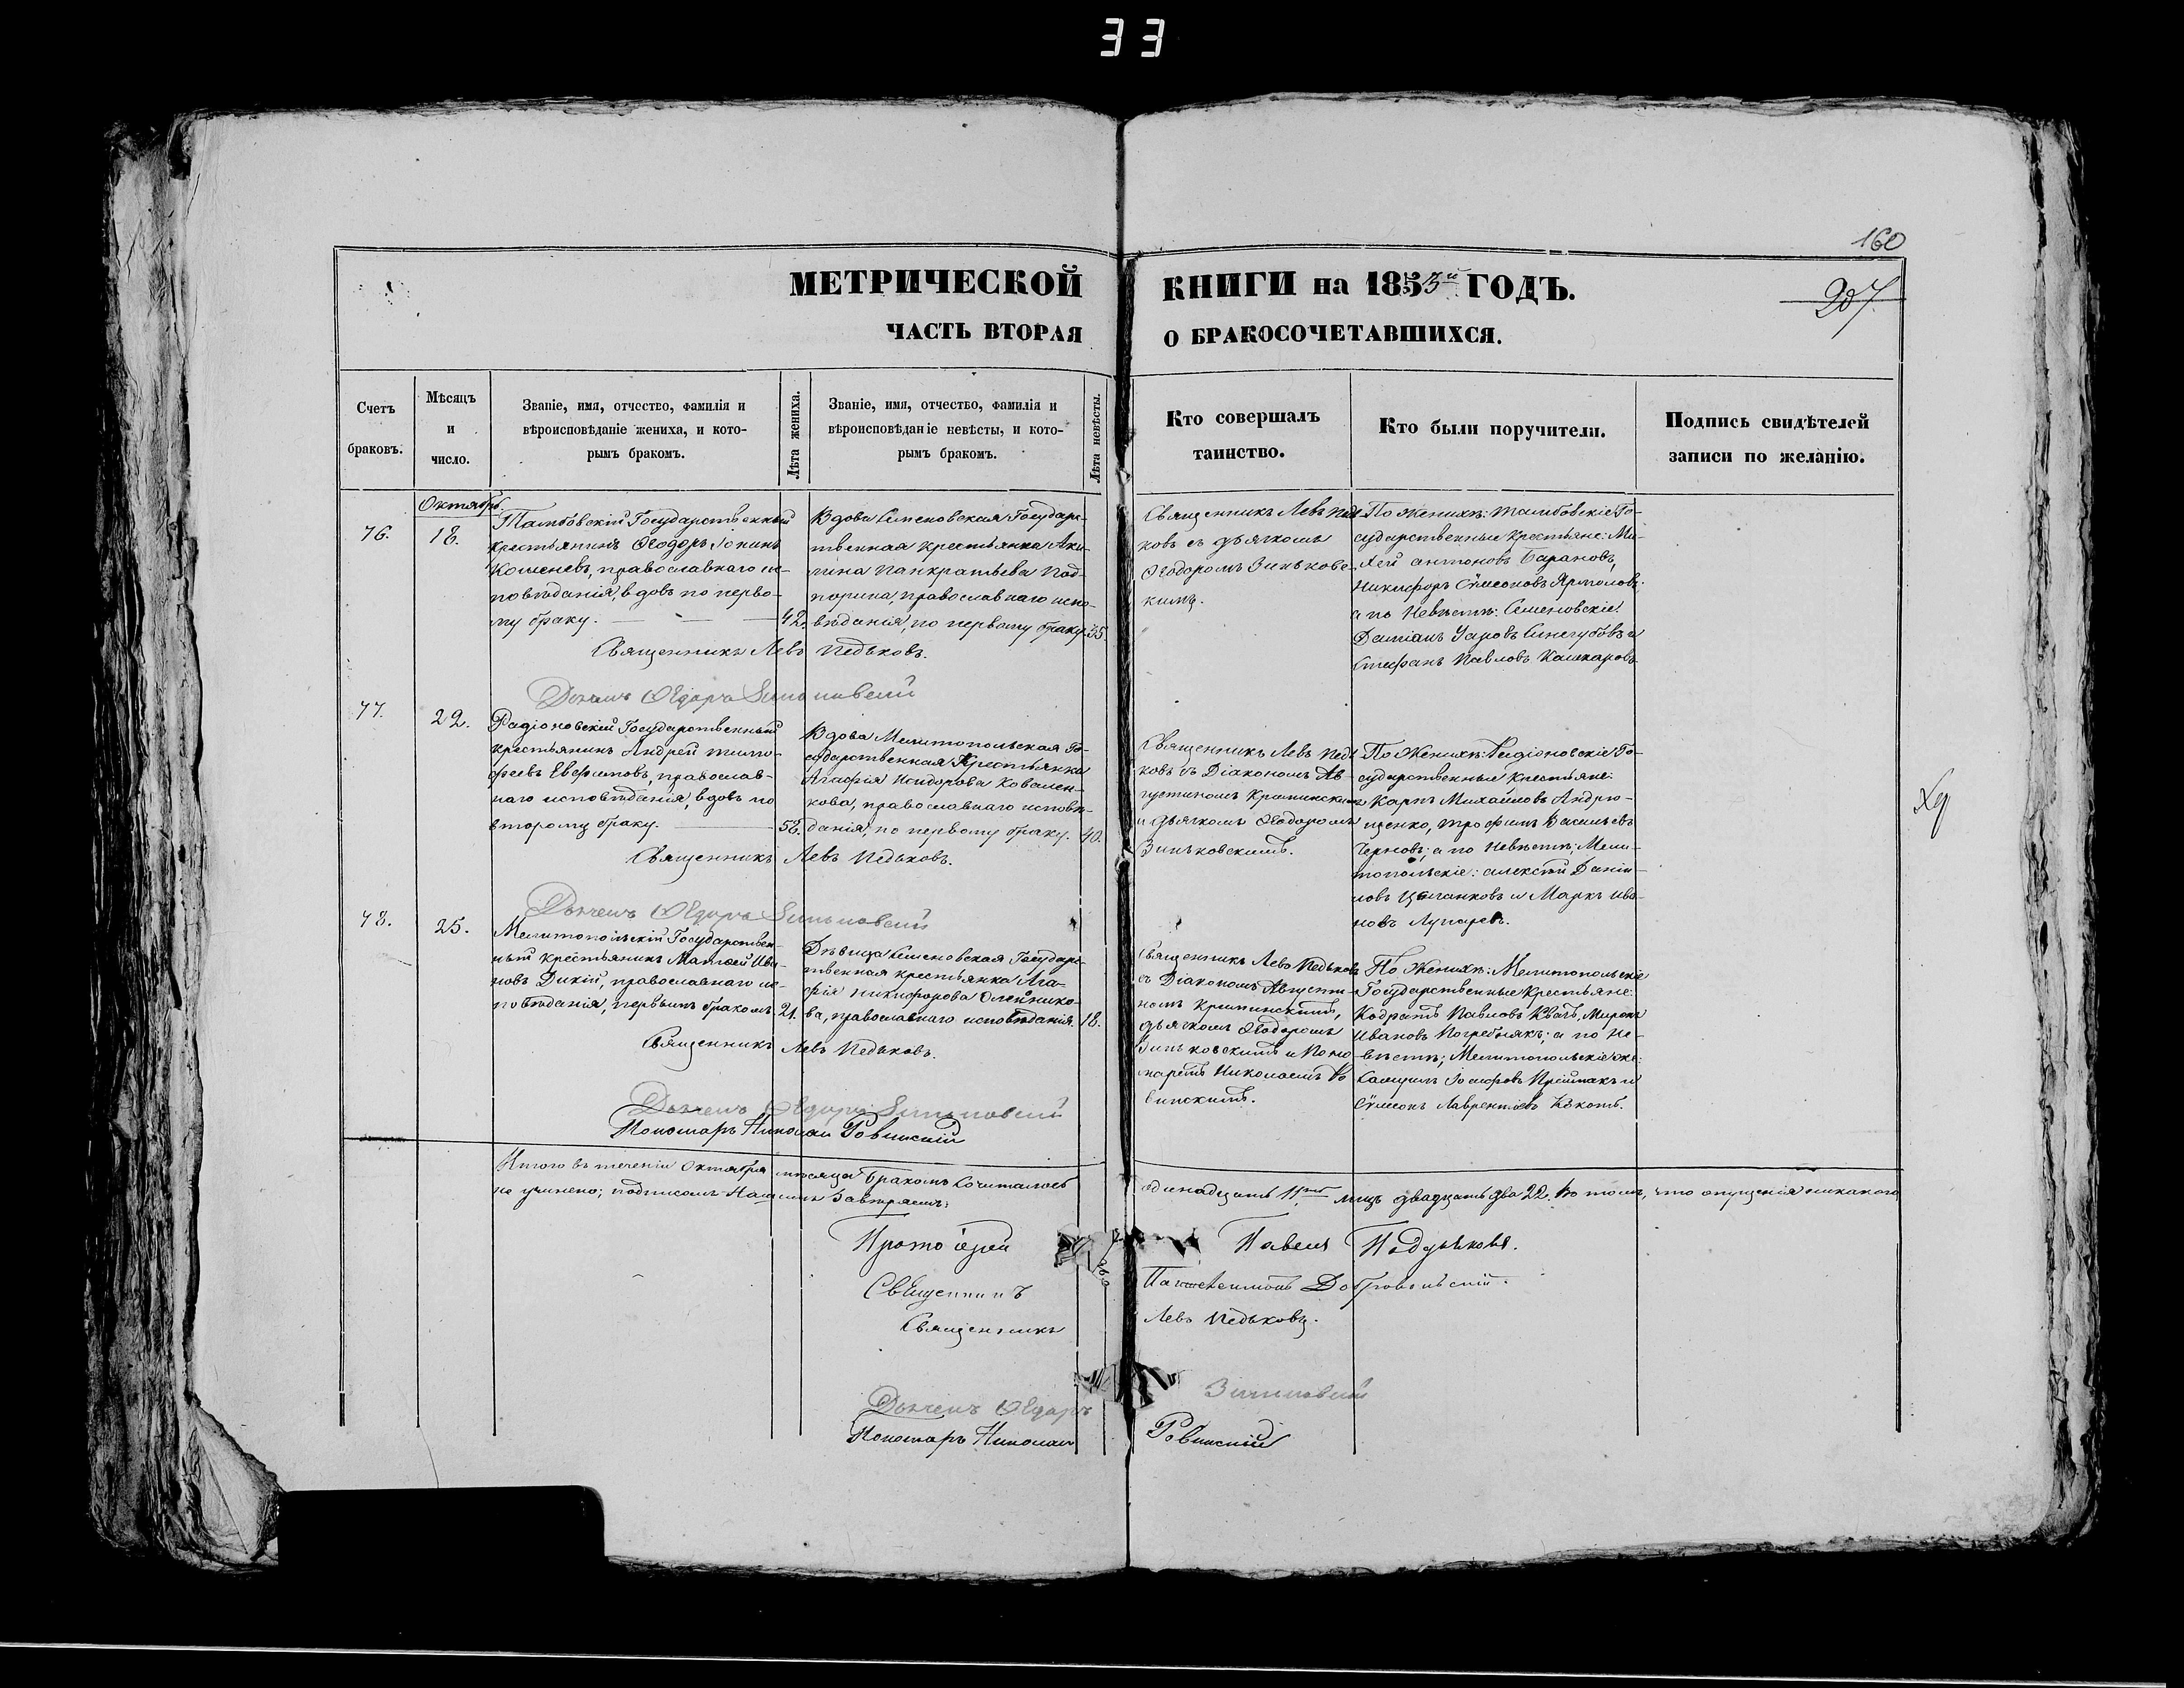 33
160
207.
МЕТРИЧЕСКОЙ КНИГИ на 1853й ГОДЪ.
ЧАСТЬ ВТОРАЯ О БРАКОСОЧЕТАВШИХСЯ.
Счетъ браковъ.
Мѣсяцъ и число.
Званіе, имя, отчество, фамилія и
вѣроисповѣданіе жениха, и кото-
рымъ бракомъ.
Лѣта жениха.
Званіе, имя, отчество, фамилія и
вѣроисповѣданіе невѣсты, и кото-
рымъ бракомъ.
Лѣта невѣсты.
Кто совершалъ
таинство.
Кто были поручители.
Подпись свидѣтелей
записи по желанію.
Октябрь.
76.
18.
Тамбовскій Государственный
крестьянинъ Ѳеодоръ Іонинъ
Кошеневъ, православнаго ис-
повѣданія, вдовъ по перво-
му браку.
42.
Вдова Семеновская Государс-
твенная крестьянка Аки-
лина Панкратьева Под-
порина, православнаго испо-
вѣданія, по первому браку.
35.
Священникъ Левъ Педьковъ.
Дьячекъ Ѳедоръ Зиньковский
Священникъ Левъ Педь-
ковъ съ дьячкомъ
Ѳеодоромъ Зиньковс-
кимъ.
По Женихѣ: Тамбовскіе Го-
сударственные крестьяне: Ми-
хей Антоновъ Барановъ,
Никифоръ Сѵмеоновъ Ярмоловъ
а по Невѣстѣ: Семеновскіе:
Даміанъ Уаровъ Синегубовъ и
Стефанъ Павловъ Кашкаровъ.
77.
22.
Радіоновскій Государственный
крестьянинъ Андрей Тимо-
феевъ Евфимовъ, православ-
наго исповѣданія, вдовъ по
второму браку.
58.
Вдова Мелитопольская Го-
сударственная Крестьянка
Агафія Исидорова Ковален-
кова, православнаго исповѣ-
данія, по первому браку.
40.
Священникъ Левъ Педьковъ.
Дьячекъ Ѳедоръ Зиньковский
Священникъ Левъ Педь-
ковъ съ Діакономъ Ав-
густиномъ Крыжинскимъ
и дьячкомъ Ѳеодоромъ
Зиньковскимъ.
По Женихѣ: Радіоновскіе Го-
сударственные Крестьяне:
Карпъ Михаиловъ Андрю-
щенко, Трофимъ Васильевъ
Черновъ; а по Невѣстѣ; Мели-
топольскіе: Алексѣй Даніи-
ловъ Цыганковъ и Маркъ Ива-
новъ Лупаревъ.
Хр
78.
25.
Мелитопольскій Государствен-
ный крестьянинъ Матѳей Ива-
новъ Дикій, православнаго ис-
повѣданія, первымъ бракомъ.
21.
Дѣвица Семеновская Государс-
твенная крестьянка Ага-
фія Никифорова Олейнико-
ва, православнаго исповѣданія.
18.
Священникъ Левъ Педьковъ.
Дьячекъ Ѳедоръ Зиньковский
Пономарь Николай Ровинскій
Священникъ Левъ Педьковъ
съ Діакономъ Августи-
номъ Крыжинскимъ,
дьячкомъ Ѳеодоромъ
Зиньковскимъ и Поно-
маремъ Николаемъ Ро-
винскимъ.
По Женихѣ: Мелитопольскіе
Государственные Крестьяне:
Кодратъ Павловъ Квачъ, Миронъ
Ивановъ Погребнякъ; а по Не-
вѣстѣ; Мелитопольскіе же:
Самуилъ Іосифовъ Приймакъ и
Сѵмеонъ Лаврентіевъ
Итого въ теченіи Октября мѣсяца бракомъ сочиталось одинадцать 11ть лицъ двадцать два 22. въ томъ, что опущенія никакого
не учинено; подписомъ нашимъ завѣряемъ:
Протоіерей Павелъ Подуньковъ.
Священникъ Пантелеимонъ Добровольскій.
Священникъ Левъ Педьковъ.
Дьячекъ Ѳедоръ Зиньковский
Пономарь Николай Ровинскій